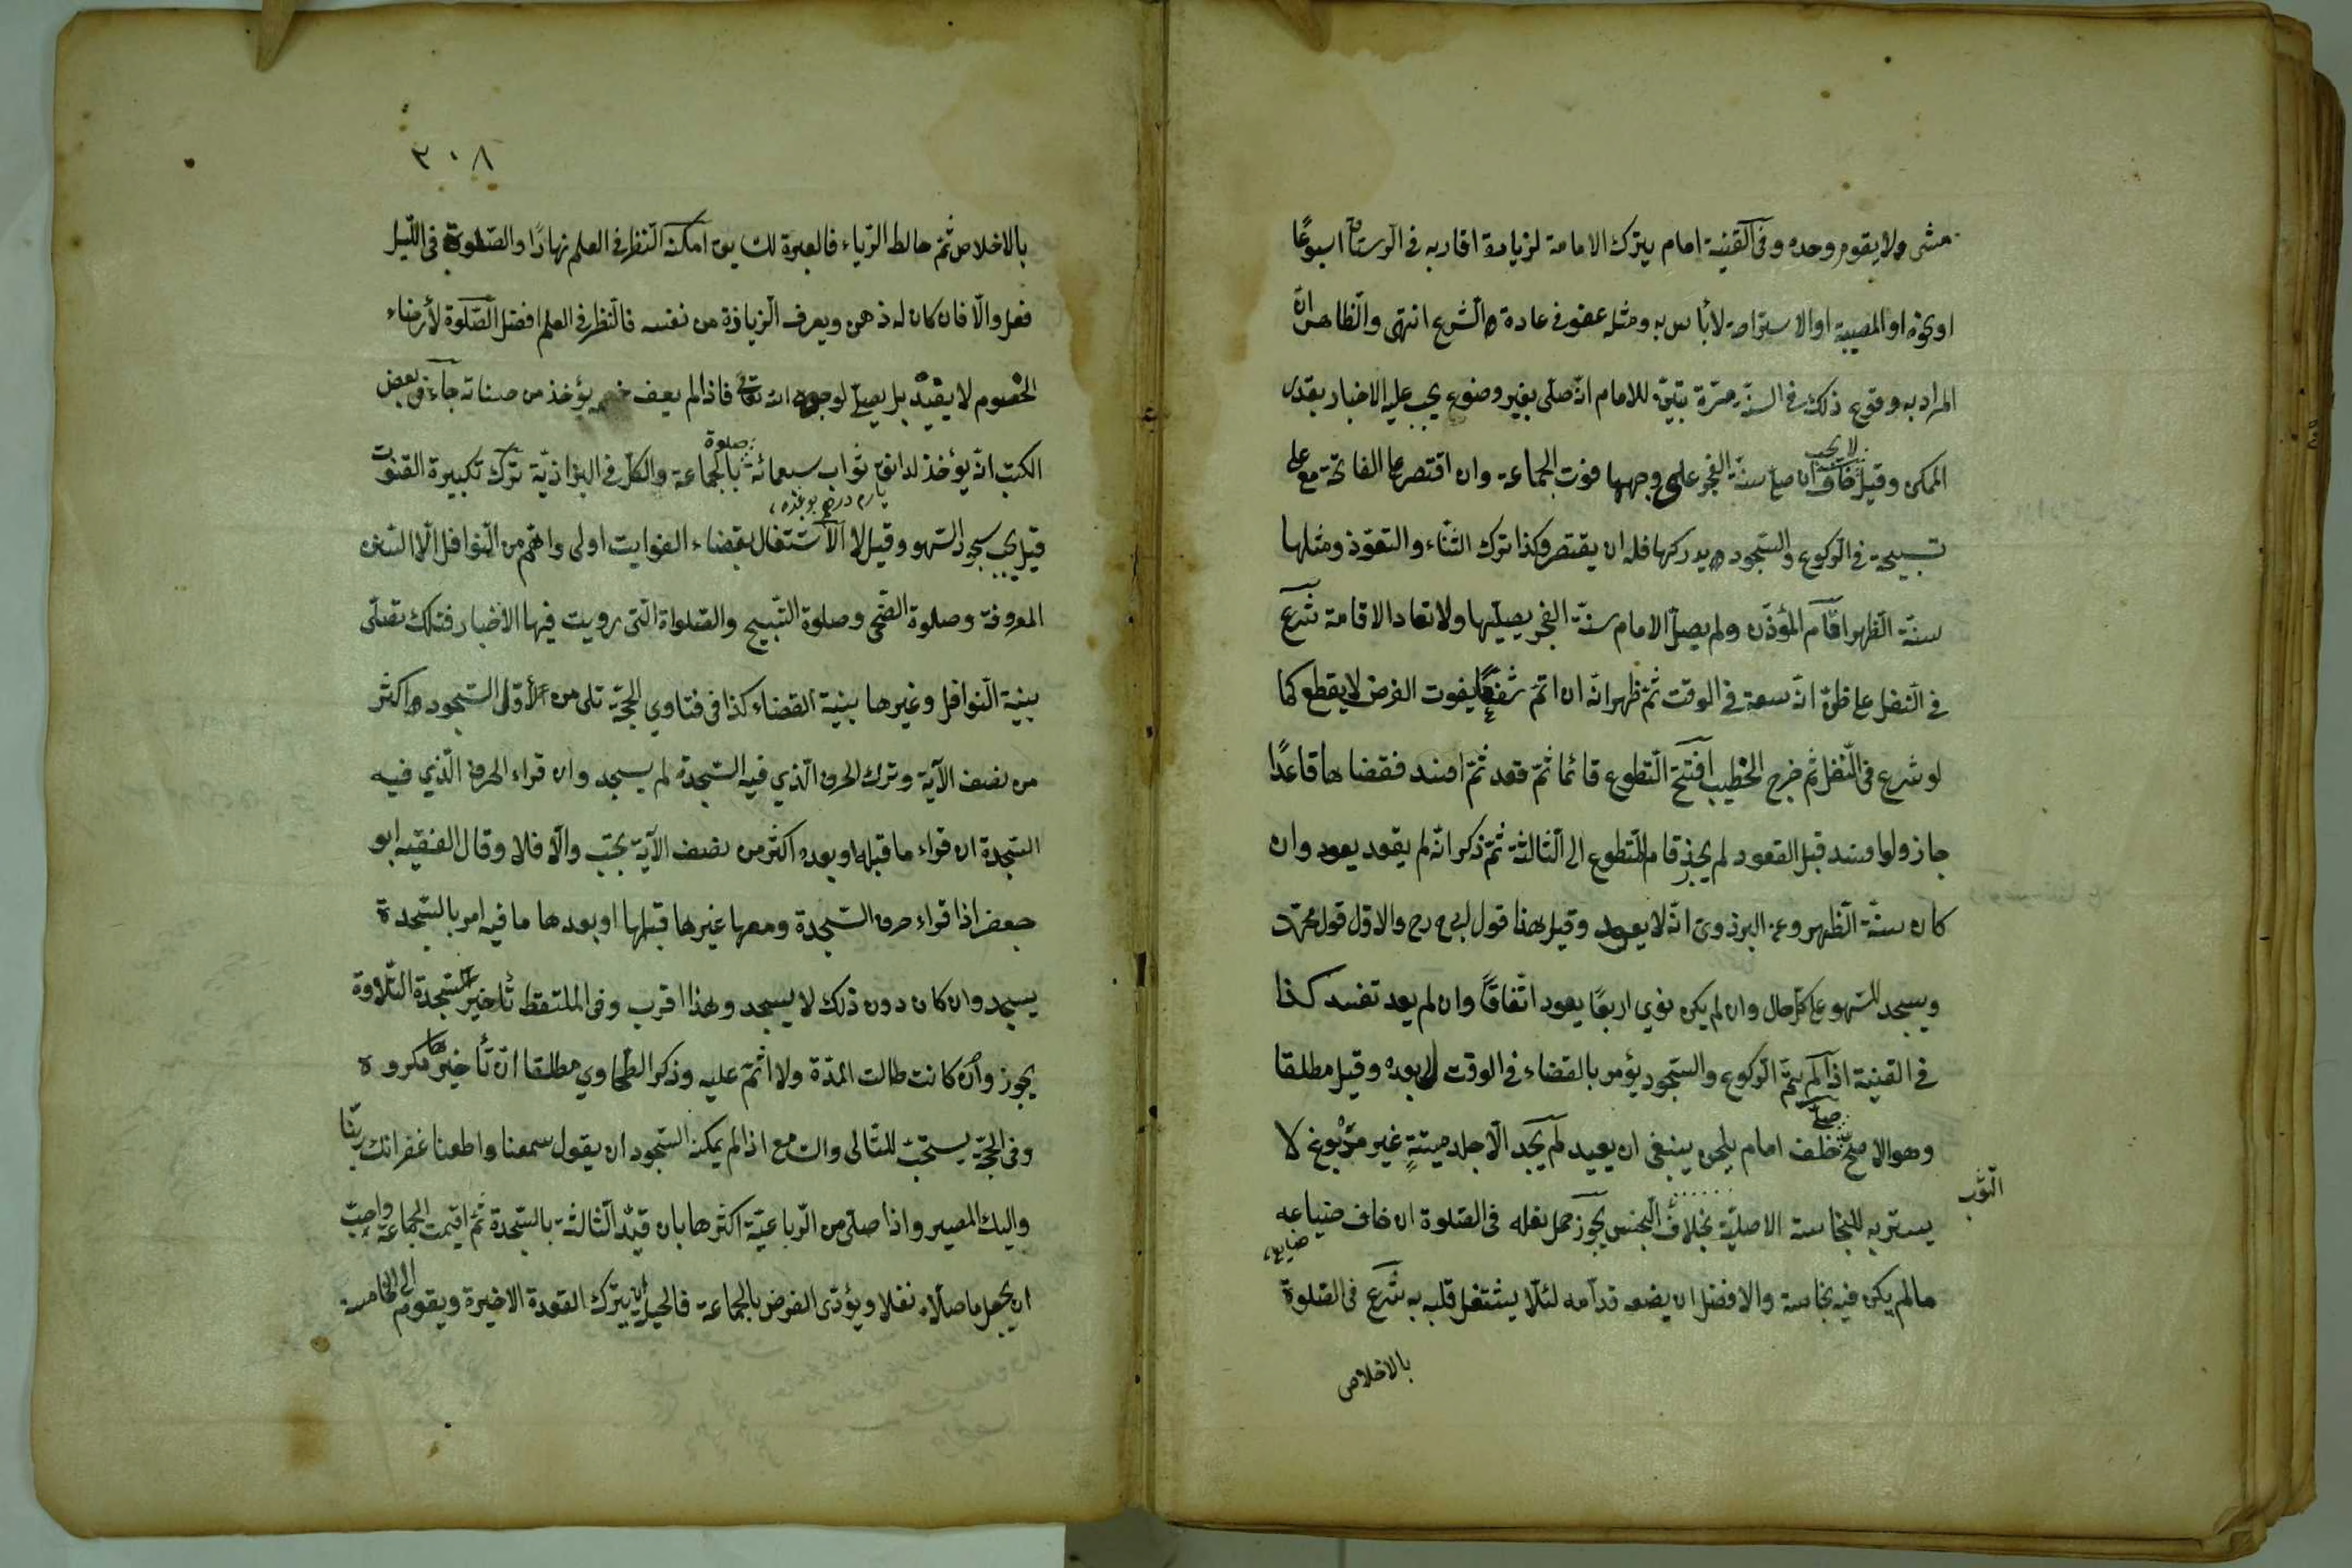 مشى ولا يقوم وحده وفى القنية امام يترك الامامة لزيارة اقاربه فى الرستاق اسبوعًا
او نحوه او لمصيبة او لاستراحة لا بأس به ومثله عفو فى عادة والشرع انتهى والظاهر ان
المراد به وقوع ذلك فى السنة مرة تبين للامام انه صلى بغير وضوء يجب عليه الاخبار بقدر
الممكن وقيل لا يجب خاف ان صلى سنة الفجر على وجهها فوت الجماعة وان اقتصر على الفاتحة مع
تسبيحة فى الركوع والسجود يدركها فله ان يقتصر وكذا ترك الثناء والتعوذ ومثلها
سنة الظهر اقام المؤذن ولم يصل الامام سنة الفجر يصليها ولا تعاد الاقامة شرع
فى النفل على ظن ان سعة فى الوقت ثم ظهر انه ان اتم شفعًا يفوت الفرض لا يقطع كما
لو شرع فى النفل ثم خرج الخطيب افتتح التطوع قائما ثم قعد ثم افسد فقضاها قاعدًا
جاز ولو افسد قبل القعود لم يجز قام المتطوع الى الثالثة ثم ذكر انه لم يقعد يعود وان
كان سنة الظهر وعن البزدوى انه لا يعود وقيل هذا قول ابى ح رح والاول قول محمد
ويسجد للسهو على كل حال وان لم يكن نوى اربعًا يعود اتفاقًا وان لم يعد تفسد كذا
فى القنية اذا لم يتم الركوع والسجود يؤمر بالقضاء فى الوقت لا بعده وقيل مطلقا
وهو الاصح صلى خلف امام يلحن ينبغى ان يعيد لم يجد الا جلد ميتةٍ غير مدبوغ لا
الثوب
يستر به للنجاسة الاصلية بخلاف النجس يجوز حمل نعله فى الصلوة ان خاف ضياعه
ضايع
مالم يكن فيه نجاسة والافضل ان يضعه قدامه لئلا يشتغل قلبه به شرع فى الصلوة
بالاخلاص
٣٠٨
بالاخلاص ثم خالط الرياء فالعبرة للسابق امكنه النظر فى العلم نهارًا والصلوة فى الليل
فعل والا فان كان له ذهن ويعرف الزيادة من نفسه فالنظر فى العلم افضل الصلوة لأرضاء
الخصوم لا يفيد بل يصلى لوجه الله تعالى فاذا لم يعف خصمه يؤخذ من حسناته جاء فى بعض
الكتب انه يؤخذ لدانق ثواب سبعمائة صلوة بالجماعة والكل فى البزازية ترك تكبيرة القنوت
قيل يجب سجود السهو وقيل لا الاشتغال بقضاء الفوايت اولى واهم من النوافل الا السنن
المعروفة وصلوة الضحى وصلوة التسبيح والصلواة التى رويت فيها الاخبار فتلك تصلى
بنية النوافل وغيرها بنية القضاء كذا فى فتاوى الحجة تلى من الأول السجود واكثر
من نصف الآية وترك الحرف الذي فيه السجدة لم يسجد وان قراء الحرف الذي فيه
السجدة ان قراء ما قبله او بعده اكثر من نصف الآية يجب والا فلا وقال الفقيه ابو
جعفر اذا قراء حرف السجدة ومعها غيرها قبلها او بعدها ما فيه امر بالسجدة
يسجد وان كان دون ذلك لا يسجد وهذا اقرب وفى الملتقط تأخير السجدة التلاوة
يجوز وان كانت طالت المدة ولا اثم عليه وذكر الطحاوي مطلقا ان تأخيرها مكروه
وفى الحجة يستحب للتالى والسامع اذا لم يمكنه السجود ان يقول سمعنا واطعنا غفرانك ربنا
واليك المصير واذا صلى من الرباعية اكثرها بان قيد الثالثة بالسجدة ثم اقيمت الجماعة واحب
ان يجعل ما صلاه نفلا ويؤدى الفرض بالجماعة فالحيلة ان يترك القعدة الاخيرة ويقوم الى الخامسة